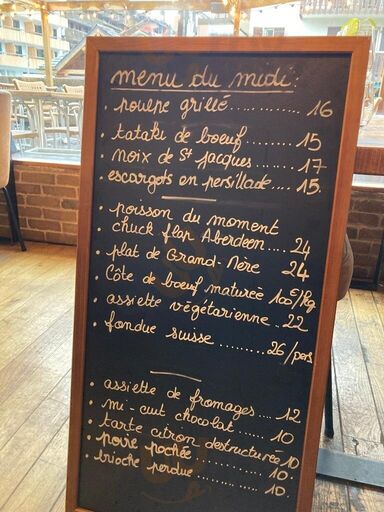 menu du midi :
• poulpe grillé ............ 16
• tataki de boeuf ..... 15
• noix de St jacques ..... 17
• escargots en persillade .... 15.
• poisson du moment
• chuck flap Aberdeen .... 24
• plat de Grand-Mère 24
• Côte de boeuf maturée 100€/kg
• assiette végétarienne .. 22
• fondue suisse ......... 26/pers
• assiette de fromages .... 12
• mi-cuit chocolat ....... 10
• tarte citron destructurée 10
• poire pochée .......... 10.
• brioche perdue ........ 10.